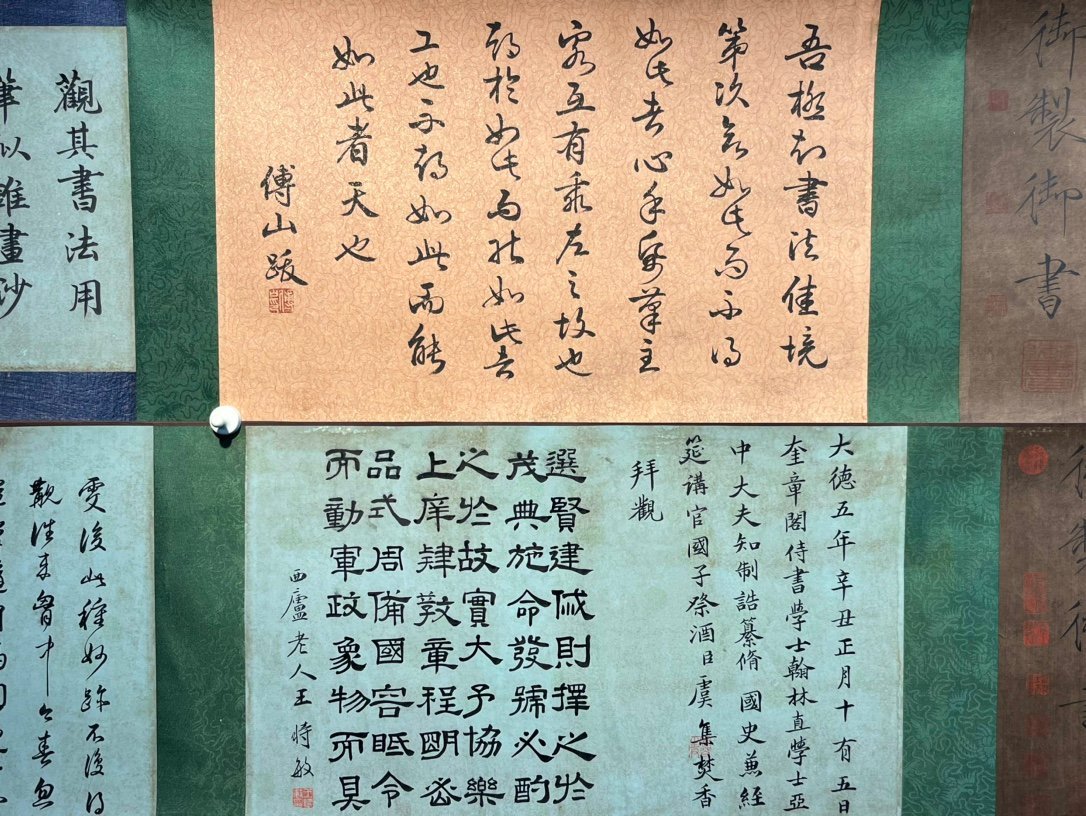 御製御書
吾極知書法佳境
第次欲如此而不得
如此者心手紙筆主
客互有乖左之故也
期於如此而能如此者
工也不期如此而能
如此者天也
傅山跋
觀其書法用
筆似錐畫沙
大德五年辛丑正月十有五日
奎章閣侍書學士翰林直學士亞
中大夫知制誥纂脩國史兼經
筵講官國子祭酒臣虞集焚香
拜觀
選賢建俶則擇之於
茂典施命發號必酌
之於故實大予協樂
上庠肄教章程明密
品式周備國容眡令
而動軍政象物而具
西廬老人王時敏
後此種妙跡不復得